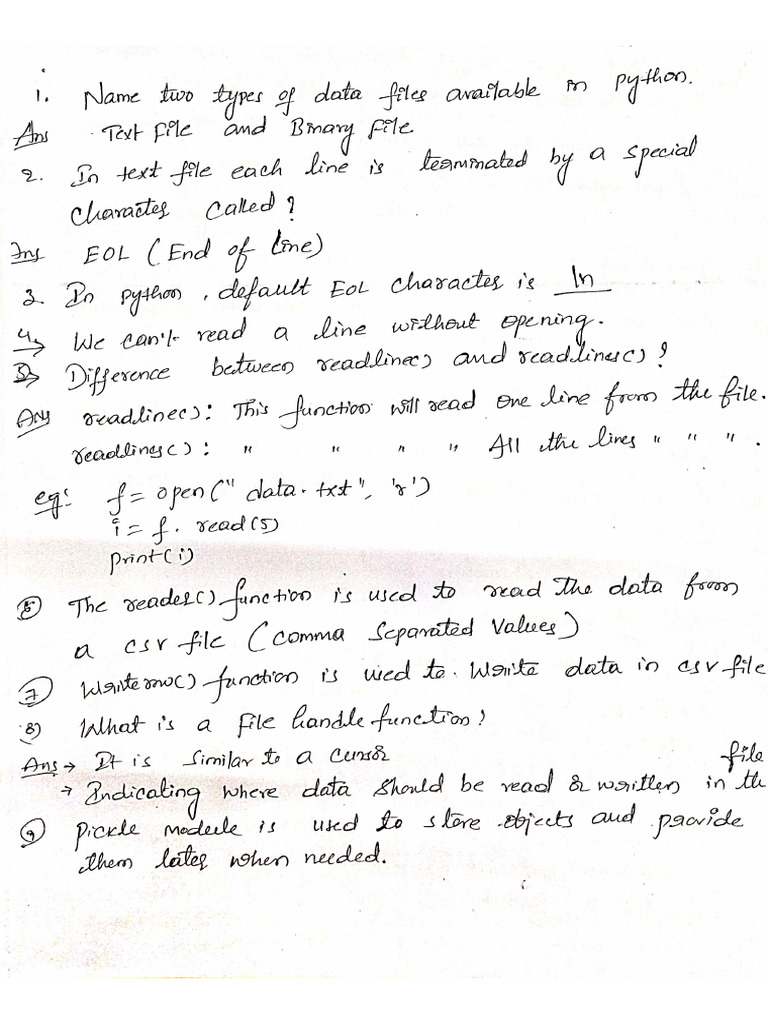 1. Name two types of data files available in python.
Ans Text file and Binary file.
2. In text file each line is terminated by a special
character called?
Ans EOL (End of line)
3. In python, default EOL character is \n
4. We can't read a line without opening.
5) Difference between readline() and readlines()?
Ans readline(): This function will read one line from the file.
readlines(): " " " " All the lines " " ".
eg: f = open("data.txt", 'r')
i = f. read(5)
print(i)
6 The reader() function is used to read the data from
a csv file (Comma Separated Values)
7 Writerow() function is used to write data in csv file
8) What is a file handle function?
Ans → It is similar to a cursor file
→ Indicating where data should be read & written in the
9 Pickle module is used to store objects and provide
them later when needed.